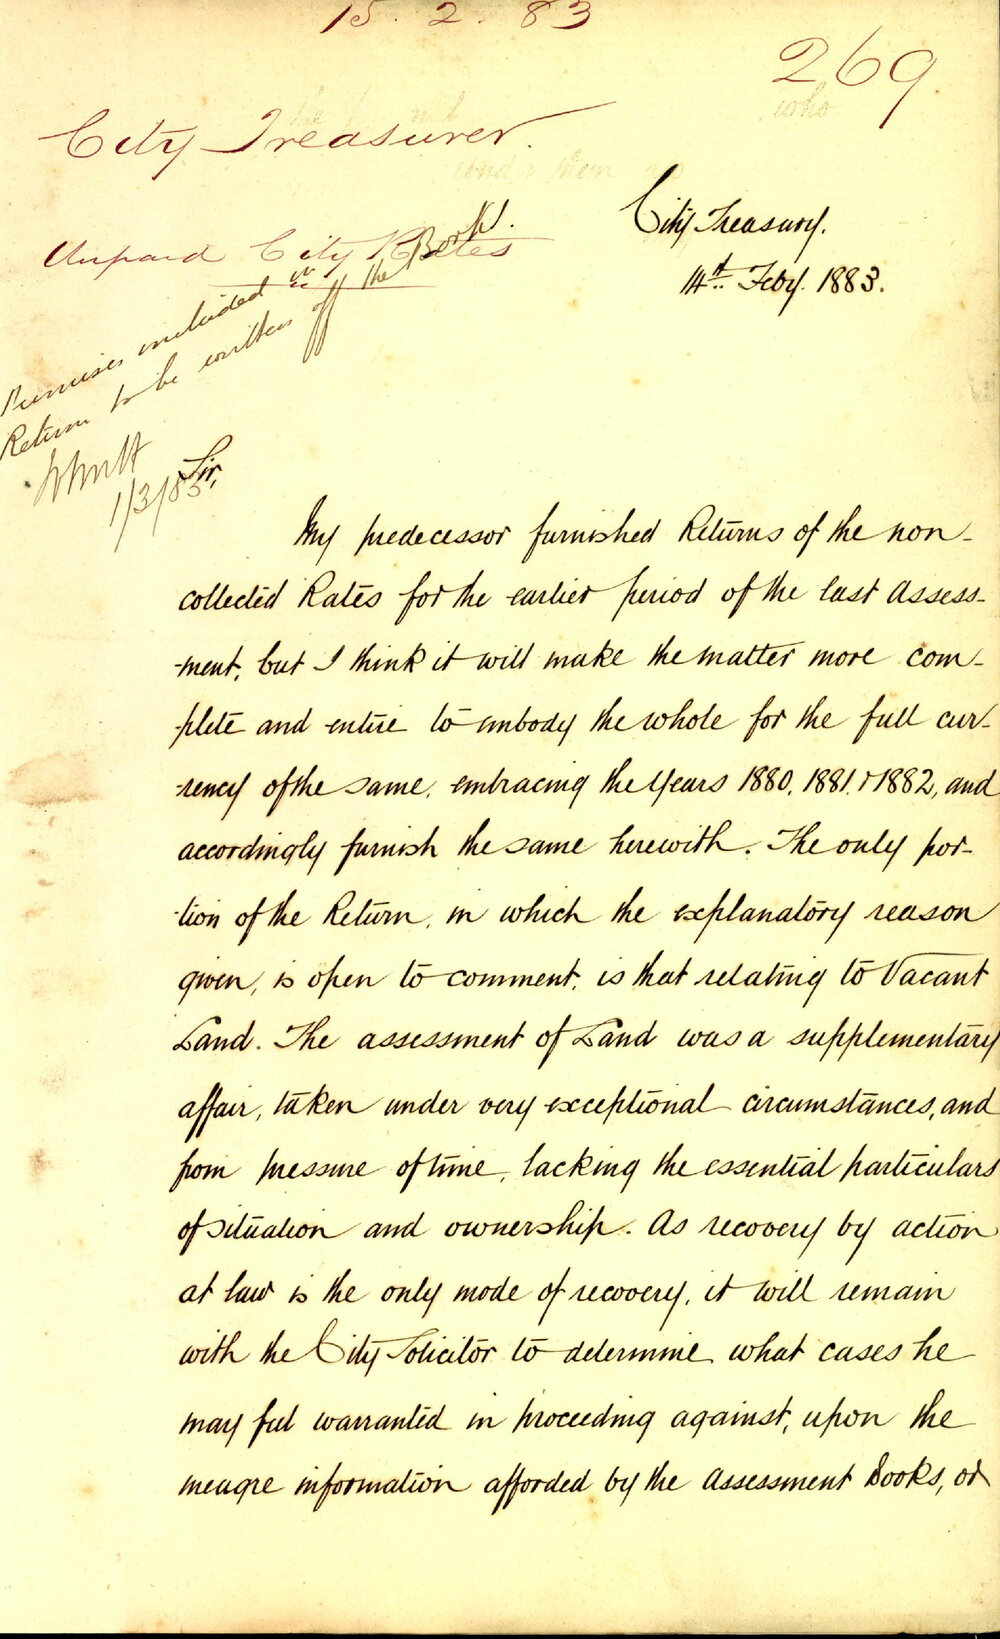 15. 2. 83
269
City Treasurer.
City Treasury.
14th. Feby. 1883.
Unpaid City Rates
Premises included in
Return to be written off the Book.
1/3/83
Sir,
My predecessor furnished Returns of the non-
collected Rates for the earlier period of the last Assess-
-ment, but I think it will make the matter more com-
-plete and entire to embody the whole for the full cur-
-rency of the same, embracing the Years 1880, 1881, & 1882, and
accordingly furnish the same herewith. The only por-
-tion of the Return, in which the explanatory reason
given, is open to comment, is that relating to Vacant
Land. The assessment of Land was a supplementary
affair, taken under very exceptional circumstances, and
from pressure of time, lacking the essential particulars
of situation and ownership. As recovery by action
at law is the only mode of recovery, it will remain
with the City Solicitor to determine what cases he
may feel warranted in proceeding against, upon the
meagre information afforded by the Assessment Books, or